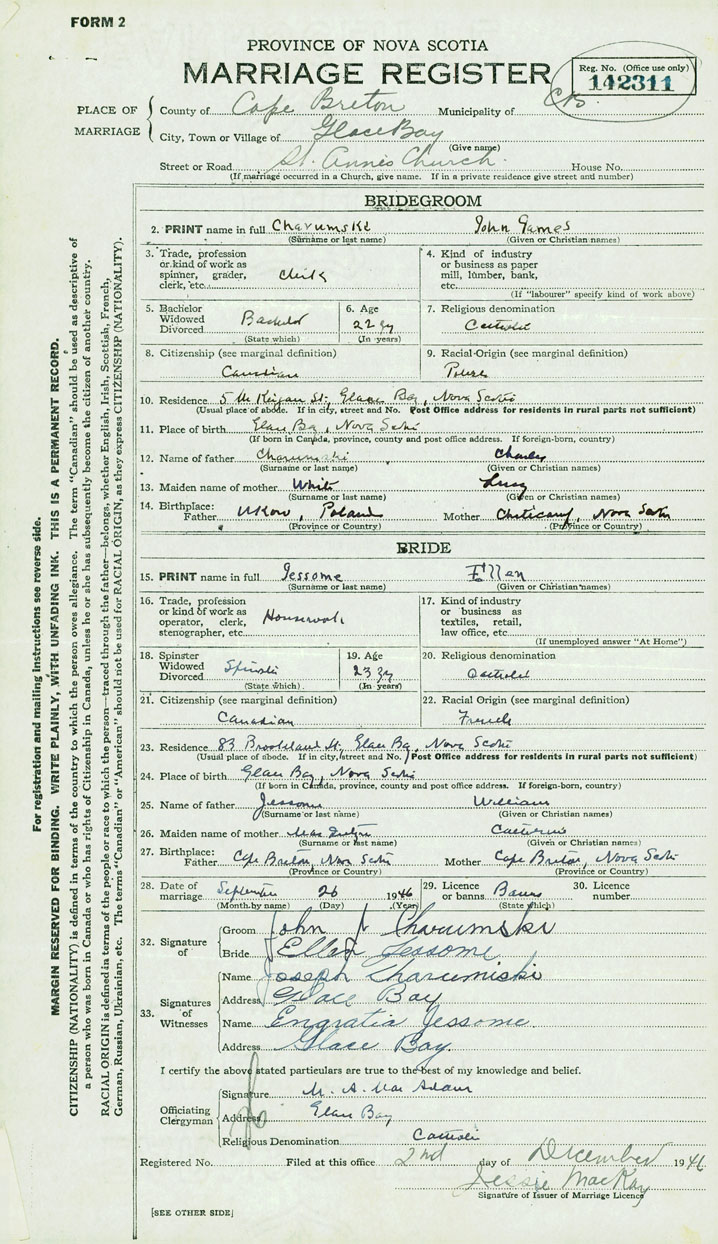 FORM 2
PROVINCE OF NOVA SCOTIA
MARRIAGE REGISTER
Reg. No. (Office use only)
142311
PLACE OF MARRIAGE
County of Cape Breton Municipality of C.B.
City, Town or Village of Glace Bay
(Give name)
Street or Road St. Anne's Church. House No.
(If marriage occurred in a Church, give name. If in a private residence give street and number)
BRIDEGROOM
2. PRINT name in full Charumski John James
(Surname or last name) (Given or Christian names)
3. Trade, profession or kind of work as spinner, grader, clerk, etc. Clerk
4. Kind of industry or business as paper mill, lumber, bank, etc.
(If "labourer" specify kind of work above)
5. Bachelor Widowed Divorced Bachelor
(State which)
6. Age 22
(In years)
7. Religious denomination
Catholic
8. Citizenship (see marginal definition)
Canadian
9. Racial Origin (see marginal definition)
10. Residence 5 McKeigan St., Glace Bay, Nova Scotia
(Usual place of abode. If in city, street and No. Post Office address for residents in rural parts not sufficient)
11. Place of birth Glace Bay, Nova Scotia
(If born in Canada, province, county and post office address. If foreign-born, country)
12. Name of father Charumski Charles
(Surname or last name) (Given or Christian names)
13. Maiden name of mother White Lucy
(Surname or last name) (Given or Christian names)
14. Birthplace: Father Poland Mother Cheticamp, Nova Scotia
(Province or Country) (Province or Country)
BRIDE
15. PRINT name in full Jessome Ellen
(Surname or last name) (Given or Christian names)
16. Trade, profession or kind of work as operator, clerk, stenographer, etc. Housework
17. Kind of industry or business as textiles, retail, law office, etc.
(If unemployed answer "At Home")
18. Spinster Widowed Divorced Spinster
(State which)
19. Age 23
(In years)
20. Religious denomination
Catholic
21. Citizenship (see marginal definition)
Canadian
22. Racial Origin (see marginal definition)
French
23. Residence 83 Brookland St, Glace Bay, Nova Scotia
(Usual place of abode. If in city, street and No. Post Office address for residents in rural parts not sufficient)
24. Place of birth Glace Bay, Nova Scotia
(If born in Canada, province, county and post office address. If foreign-born, country)
25. Name of father Jessome William
(Surname or last name) (Given or Christian names)
26. Maiden name of mother Catherine
(Surname or last name) (Given or Christian names)
27. Birthplace: Father Cape Breton, Nova Scotia Mother Cape Breton, Nova Scotia
(Province or Country) (Province or Country)
28. Date of marriage September 26 1946
(Month by name) (Day) (Year)
29. Licence or banns Banns
(State which)
30. Licence number
32. Signature of
Groom John J Charumski
Bride Ellen Jessome
33. Signatures of Witnesses
Name Joseph Charumiski
Address Glace Bay
Name Engratia Jessome.
Address Glace Bay.
I certify the above stated particulars are true to the best of my knowledge and belief.
Officiating Clergyman
Signature M. A. MacAdam
Address Glace Bay
Religious Denomination Catholic
Registered No. Filed at this office 2nd day of December 1946
Jessie MacKay
Signature of Issuer of Marriage Licence
[SEE OTHER SIDE]
For registration and mailing instructions see reverse side.
MARGIN RESERVED FOR BINDING. WRITE PLAINLY, WITH UNFADING INK. THIS IS A PERMANENT RECORD.
CITIZENSHIP (NATIONALITY) is defined in terms of the country to which the person owes allegiance. The term "Canadian" should be used as descriptive of
a person who was born in Canada or who has rights of Citizenship in Canada, unless he or she has subsequently become the citizen of another country.
RACIAL ORIGIN is defined in terms of the people or race to which the person—traced through the father—belongs, whether English, Irish, Scottish, French,
German, Russian, Ukrainian, etc. The terms "Canadian" or "American" should not be used for RACIAL ORIGIN, as they express CITIZENSHIP (NATIONALITY).